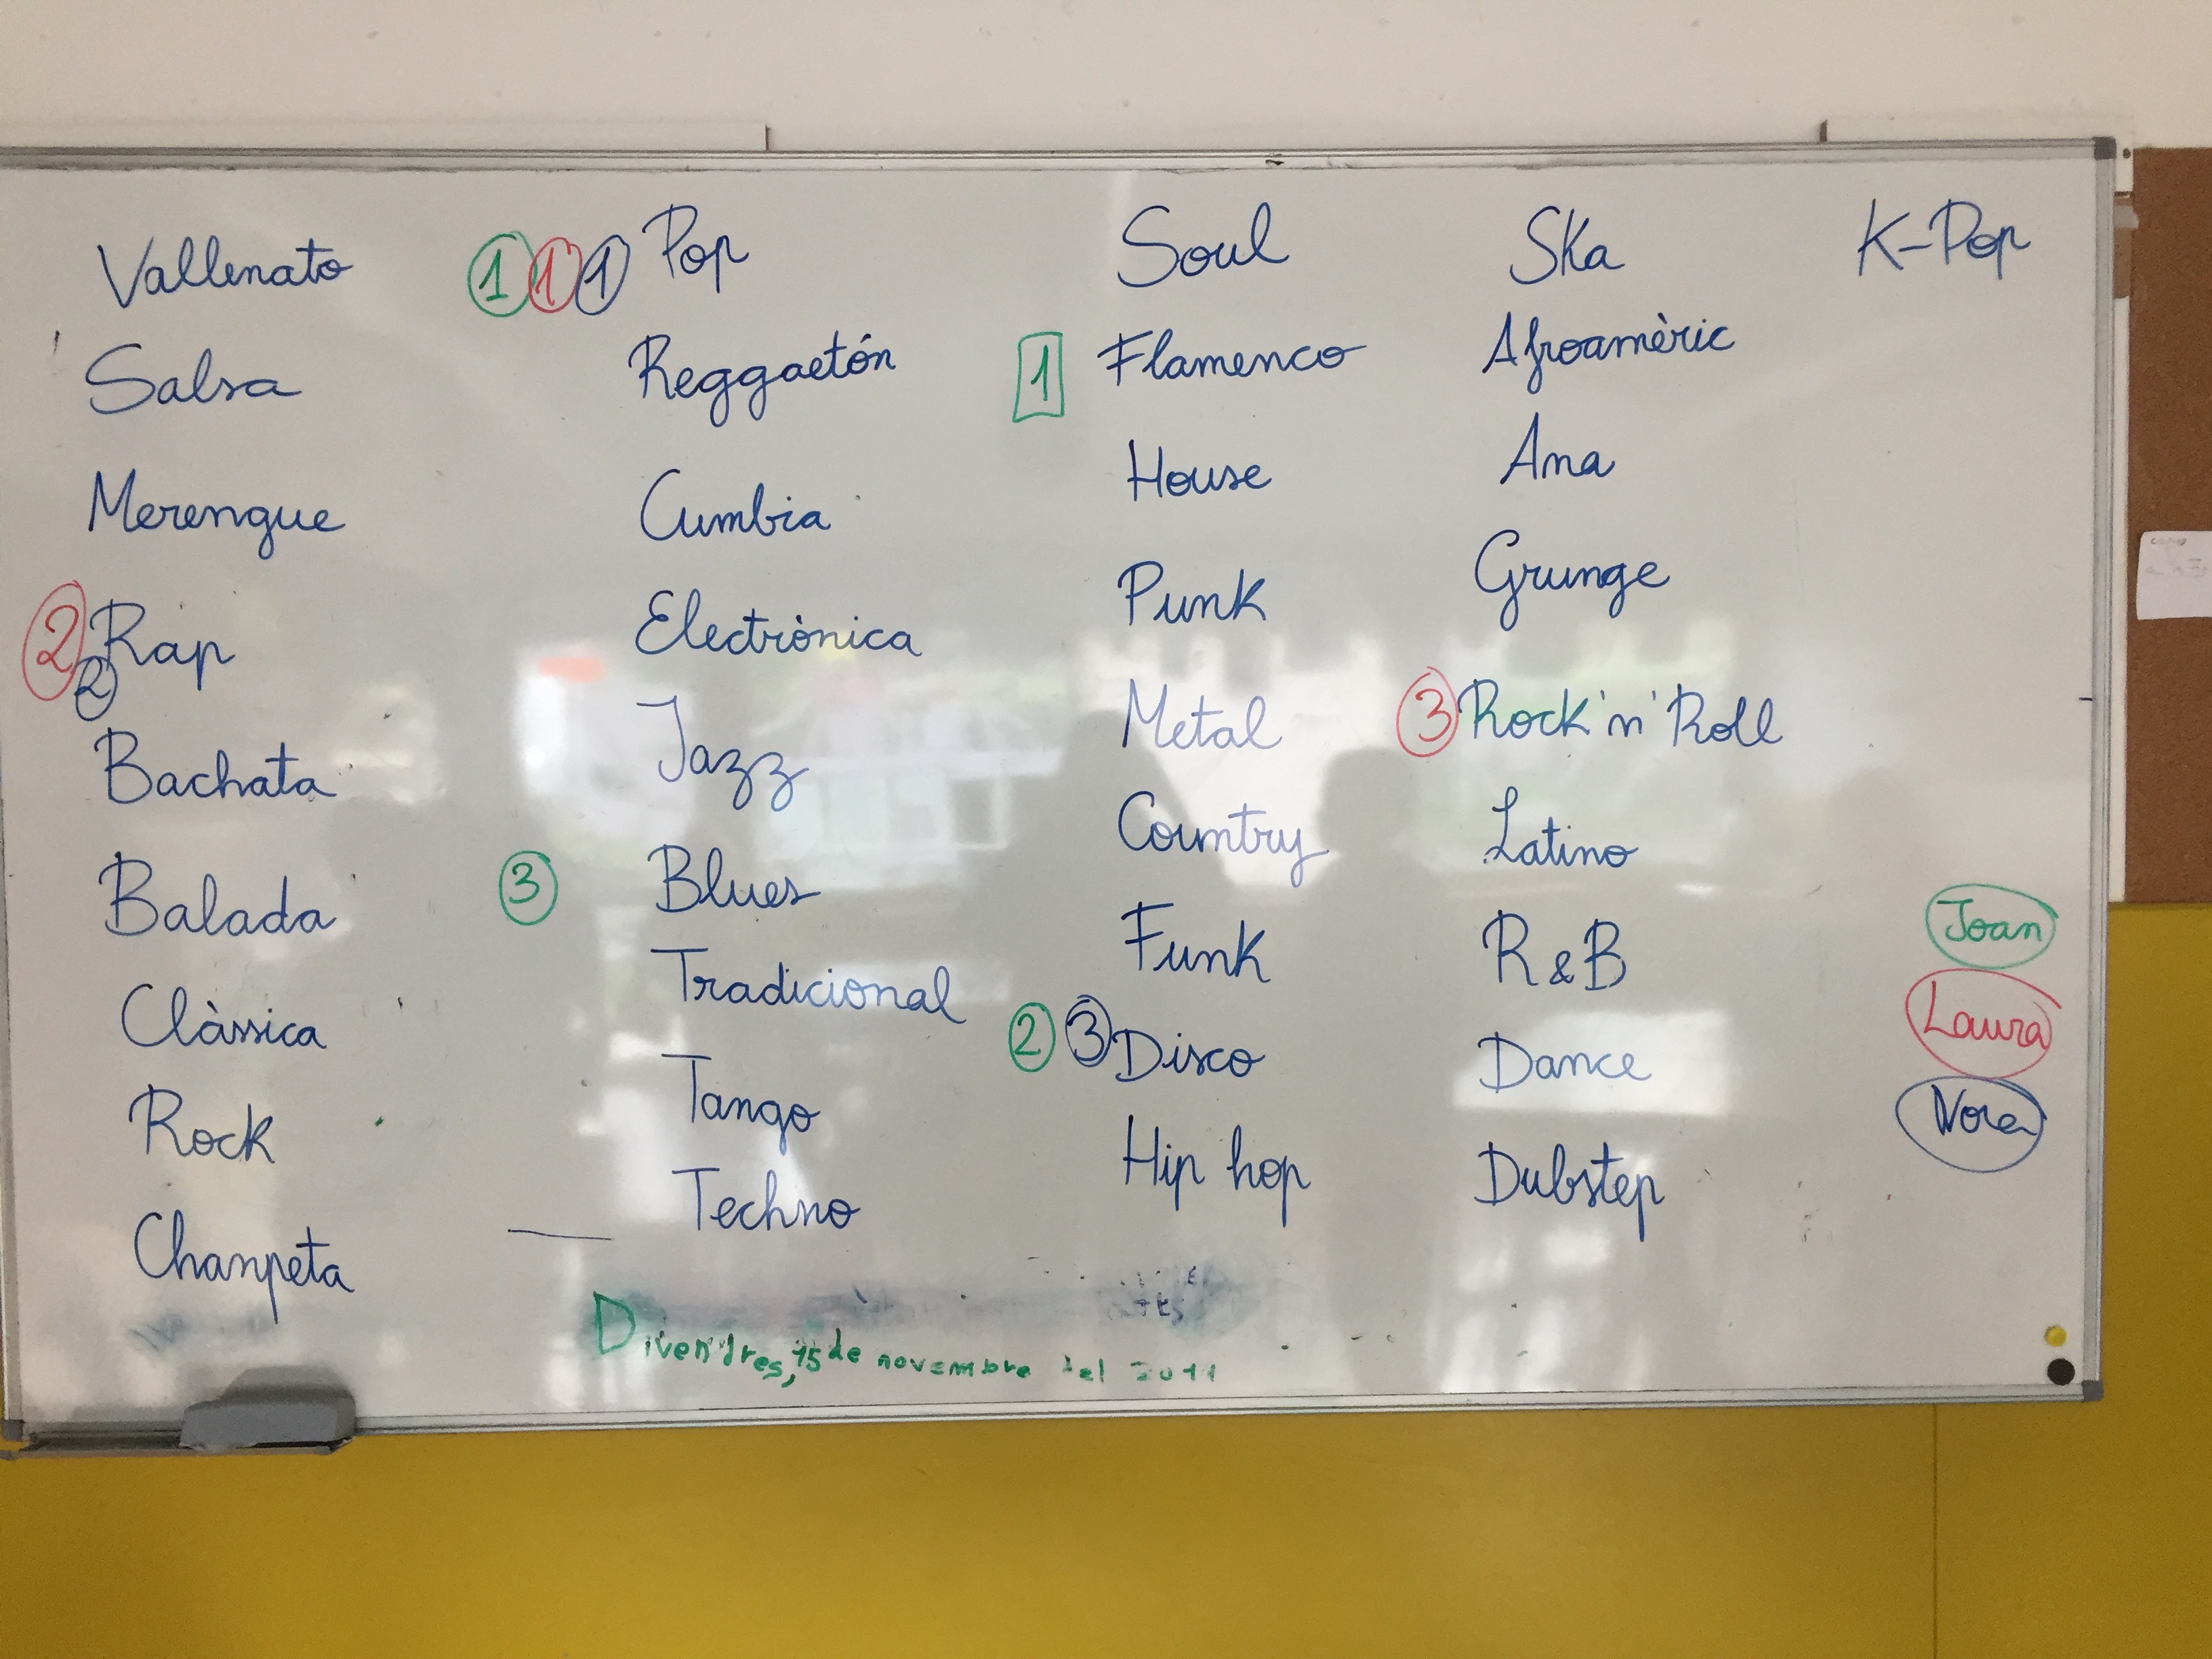 Vallenato
Salsa
Merengue
2 2 Rap
Bachata
Balada
Clàssica
Rock
Chanpeta
1 1 1 Pop
Reggaetón
Cumbia
Electrònica
Jazz
3 Blues
Tradicional
Tango
Techno
Soul
1 Flamenco
House
Punk
Metal
Country
Funk
2 3 Disco
Hip hop
Ska
Afroamèric
Ana
Grunge
3 Rock 'n' Roll
Latino
R&B
Dance
Dubstep
K-Pop
Joan
Laura
Nora
Divendres, 15 de novembre del 2011